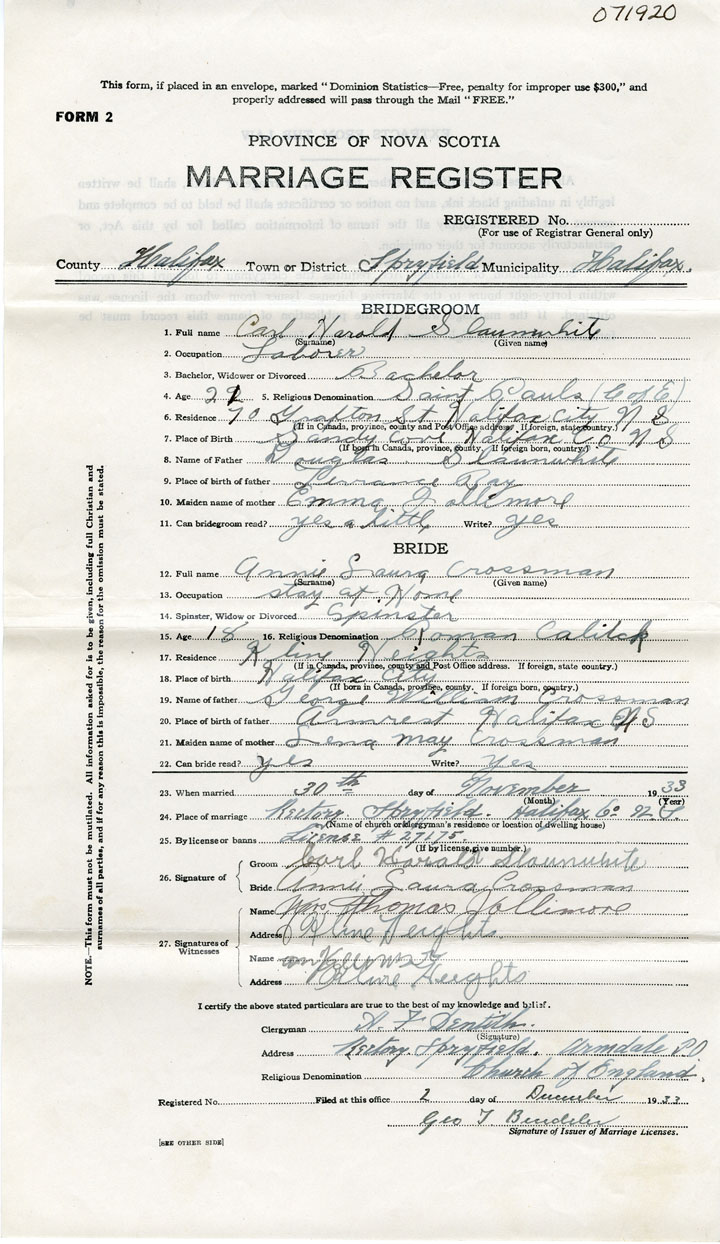 071920
This form, if placed in an envelope, marked "Dominion Statistics—Free, penalty for improper use $300," and
properly addressed will pass through the Mail "FREE."
FORM 2
PROVINCE OF NOVA SCOTIA
MARRIAGE REGISTER
REGISTERED No.
(For use of Registrar General only)
County Halifax Town or District Spryfield Municipality Halifax.
BRIDEGROOM
1. Full name Carl Harold Slaunwhite
(Surname) (Given name)
2. Occupation Laborer
3. Bachelor, Widower or Divorced Bachelor
4. Age 22 5. Religious Denomination Saint Pauls (C of E)
6. Residence 70 Grafton St Halifax City N S
(If in Canada, province, county and Post Office address. If foreign, state country.)
7. Place of Birth Sandy Cove Halifax Co N S
(If born in Canada, province, county. If foreign born, country.)
8. Name of Father Douglas Slaunwhite
9. Place of birth of father Terrance Bay
10. Maiden name of mother Emma Jollimore
11. Can bridegroom read? yes a little Write? yes
BRIDE
12. Full name Annie Laura Crossman
(Surname) (Given name)
13. Occupation stay at Home
14. Spinster, Widow or Divorced Spinster
15. Age 18 16. Religious Denomination Roman Calitck
17. Residence Kline Heights
(If in Canada, province, county and Post Office address. If foreign, state country.)
18. Place of birth Halifax City
(If born in Canada, province, county. If foreign born, country.)
19. Name of father George William Crossman
20. Place of birth of father Armrest Halifax N S
21. Maiden name of mother Lena May Crossman
22. Can bride read? yes Write? yes
23. When married 30th day of November 1933
(Month) (Year)
24. Place of marriage Rectory Spryfield. Halifax Co
(Name of church or clergyman's residence or location of dwelling house)
25. By license or banns License # 27175.
(If by license, give number.)
26. Signature of
Groom Carl Harold Slaunwhite
Bride Annie Laura Crossman
27. Signatures of Witnesses
Name Mrs Thomas Jollimore
Address Kline Heights
Name
Address Kline Heights
I certify the above stated particulars are true to the best of my knowledge and belief.
Clergyman A. F Dentith.
(Signature)
Address Rectory Spryfield. Armdale P.O
Religious Denomination Church of England.
Registered No. Filed at this office 2 day of December 1933
Geo T
Signature of Issuer of Marriage Licenses.
[SEE OTHER SIDE]
NOTE.—This form must not be mutilated. All information asked for is to be given, including full Christian and
surnames of all parties, and if for any reason this is impossible, the reason for the omission must be stated.